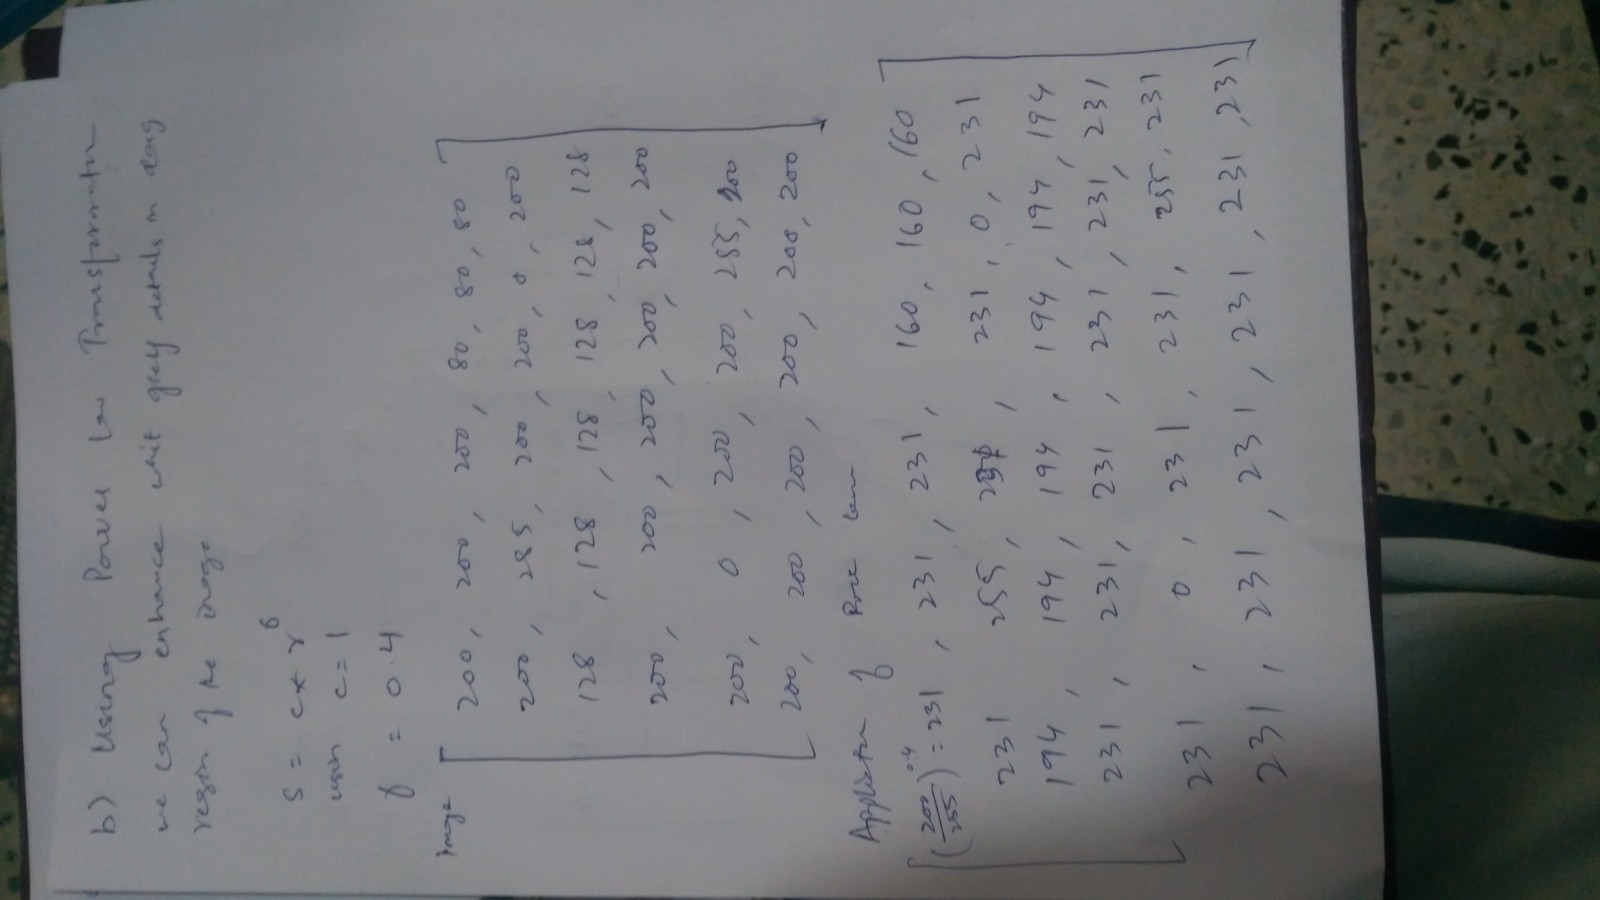 b) Using Power law Transformation
we can enhance grey details in
region of the image
S = c * r^γ
using c = 1
γ = 0.4
image
200, 200, 200, 200, 80, 80, 80
200, 255, 200, 200, 0, 200
128, 128, 128, 128, 128, 128
200, 200, 200, 200, 200, 200
200, 0, 200, 200, 255, 200
200, 200, 200, 200, 200, 200
Application of Power law
(200/255)^0.4 = 231, 231, 231, 160, 160, 160
231 255, 231, 0, 231
194, 194, 194, 194, 194, 194
231, 231, 231, 231, 231, 231
231, 0, 231, 231, 255, 231
231, 231, 231, 231, 231, 231